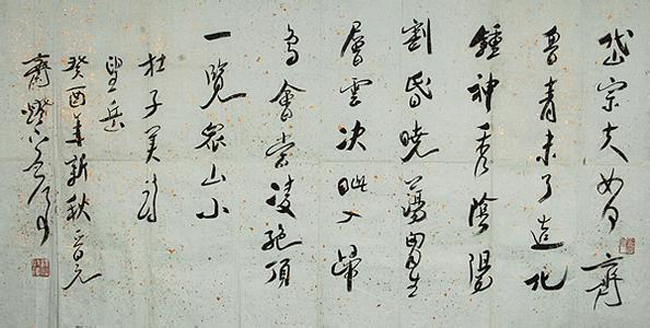 岱宗夫如何齊
魯青未了造化
鍾神秀陰陽
割昏曉蕩胸生
層雲決眦入歸
鳥會當凌絕頂
一覽眾山小
杜子美詩
望岳
癸酉年新秋晋元
齋燈下